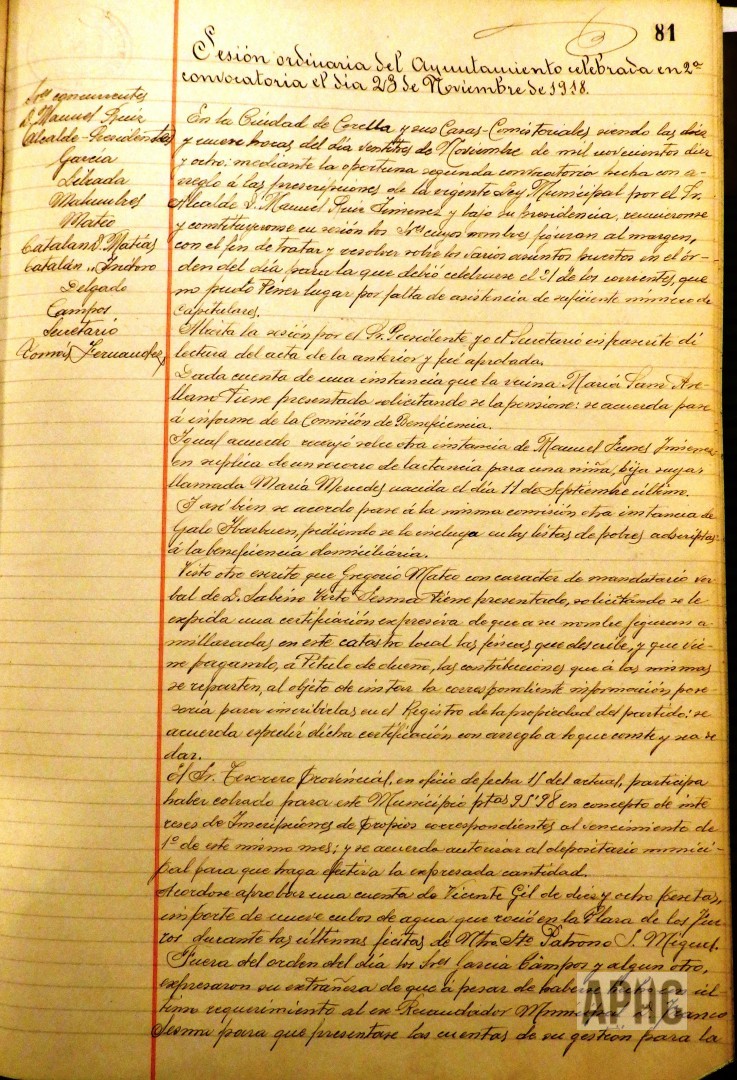 81
Sesión ordinaria del Ayuntamiento celebrada en 2ª
convocatoria el día 23 de Noviembre de 1918.
Sres concurrentes
D. Manuel Ruiz
Alcalde-Presidente
García
Librada
Matumbres
Mateo
Catalan D. Matías
Catalán " Isidoro
Delgado
Campos
Secretario
Tomás Fernandez
En la Ciudad de Corella y sus Casas-Comistoriales siendo las diez
y nueve horas del día veintitres de Noviembre de mil novecientos diez
y ocho: mediante la oportuna segunda convocatoria hecha con a-
rreglo á las prescripciones de la vigente Ley Municipal por el Sr.
Alcalde D. Manuel Ruiz Jimenez y bajo su presidencia, reunieronse
y constituyeronse en sesión los Sres cuyos nombres figuran al margen,
con el fin de tratar y resolver sobre los varios asuntos puestos en el or-
den del día para la que debió celebrarse el 21 de los corrientes, que
no pudo tener lugar por falta de asistencia de suficiente número de
capitulares.
Abierta la sesión por el Sr. Presidente yo el Secretario infrascrito dí
lectura del acta de la anterior y fué aprobada.
Dada cuenta de una instancia que la vecina María Sanz Are-
llano tiene presentada solicitando se la pensione: se acuerda pase
á informe de la Comisión de Beneficencia.
Igual acuerdo recayó sobre otra instancia de Manuel Jimenez
en súplica de un socorro de lactancia para una niña, hija suya,
llamada María Mercedes nacida el día 11 de Septiembre último.
Y así bien se acordo pase á la misma comisión otra instancia de
Galo Ibarbuen, pidiendo se le incluya en las listas de pobres adscriptos
á la beneficencia domiciliária.
Visto otro escrito que Gregorio Mateo con caracter de mandatario ver-
bal de D. Sabino Sesma tiene presentado, solicitándo se le
expida una certificación expresiva de que a su nombre figuran a-
millaradas en este catastro local las fincas que describe, y que vie-
ne pagando, á titulo de dueño, las contribuciones que á las mismas
se reparten, al objeto de instar la correspondiente información pose-
soria para inscribirlas en el Registro de la propiedad del partido: se
acuerda expedir dicha certificación con arreglo a lo que conste y sea de
dar.
El Sr. Tesorero Provincial, en oficio de fecha 15 del actual, participa
haber cobrado para este Municipio ptas 95'98 en concepto de inte-
reses de Inscripciones de Propios correspondientes al vencimiento de
1º de este mismo mes; y se acuerda autorizar al depositario munici-
pal para que haga efectiva la expresada cantidad.
Acordose aprobar una cuenta de Vicente Gil de diez y ocho pesetas,
importe de nueve cubos de agua que regó en la Plaza de los Fue-
ros durante las últimas fiestas de Ntro. Sto. Patrono S. Miguel.
Fuera del orden del día los Sres García Campos y algun otro,
expresaron su extrañeza de que a pesar de haberse hecho un úl-
timo requerimiento al ex-Recaudador Municipal D. Franco
Sesma para que presentase las cuentas de su gestión para la
APAC